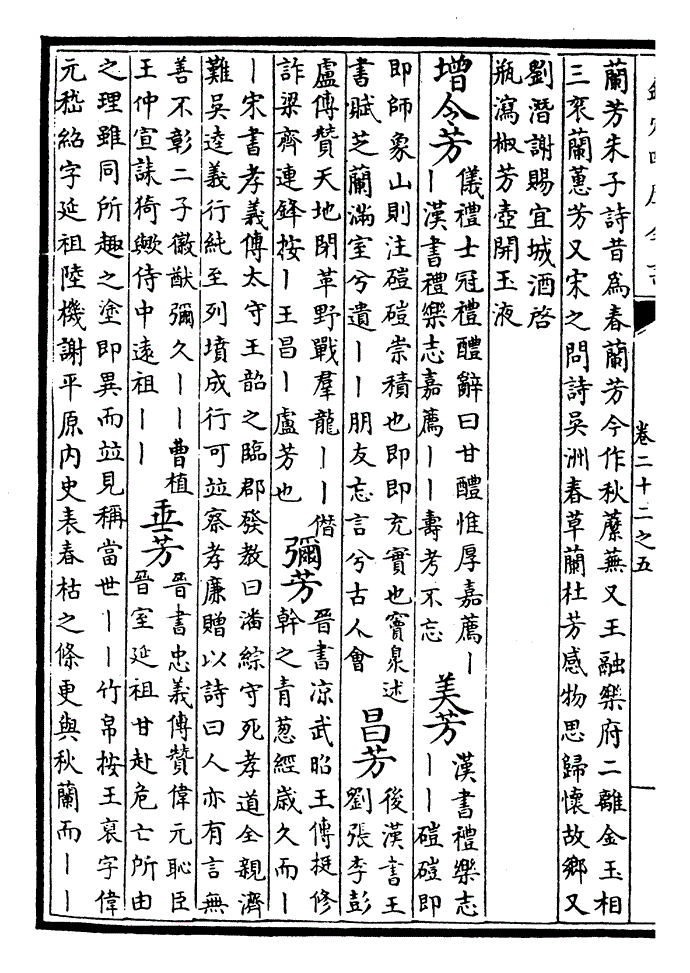 欽定四庫全書
卷二十二之五
蘭芳朱子詩昔為春蘭芳今作秋蘪蕪又王融樂府二離金玉相
三衮蘭蕙芳又宋之問詩吳洲春草蘭杜芳感物思歸懷故鄉又
劉潛謝賜宜城酒啓
瓶瀉椒芳壺開玉液
增令芳
儀禮士冠禮醴辭曰甘醴惟厚嘉薦丨
丨漢書禮樂志嘉薦丨丨壽考不忘
美芳
漢書禮樂志
丨丨磑磑即
即師象山則注磑磑崇積也即即充實也竇泉述
書賦芝蘭滿室兮遺丨丨朋友忘言兮古人會
昌芳
後漢書王
劉張李彭
盧傳贊天地閉革野戰羣龍丨丨僭
詐梁齊連鋒按丨王昌丨盧芳也
彌芳
晉書凉武昭王傳挺修
幹之青葱經歲久而丨
丨宋書孝義傳太守王韶之臨郡發教曰潘綜守死孝道全親濟
難吳逵義行純至列墳成行可並察孝廉贈以詩曰人亦有言無
善不彰二子徽猷彌久丨丨曹植
王仲宣誄猗歟侍中遠祖丨丨
垂芳
晉書忠義傳贊偉元恥臣
晉室延祖甘赴危亡所由
之理雖同所趣之塗即異而並見稱當世丨丨竹帛按王裒字偉
元嵇紹字延祖陸機謝平原內史表春枯之條更與秋蘭而丨丨